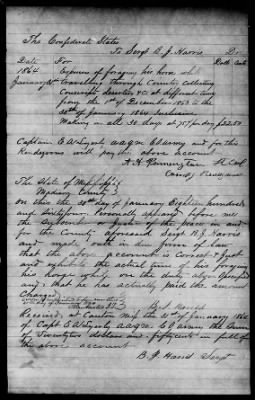 The Confederate States
To Sergt B. J. Harris Dr
Date For Dolls Cents
1864 Expense of foraging his horse whilst
January 30th travelling through Counties Collecting
Conscripts deserters &c at different times
from the 1st of December 1863 to the
30th of January 1864 Inclusive
Making in all 30 days at 75¢ per day $22.50
Captain E A a.q.m. C.S. army and for this
Rendezvous will pay the above account
A. H. Lt Col
Camp
The State of Mississippi
Madison County
On this the 30th day of January Eighteen hundred
and Sixty four Personally appeared before me
the subscriber a Justice of the peace in and
for the County aforesaid Sergt B. J. Harris
and made oath in due form of law
that the above account is Correct & Just
and whilst the actual time of his foraging
his horse whilst on the duty above specified
and that he has actually paid the amount
Charged
B. J. Harris
Received at Canton Miss the 30th of January 1864
of Capt E A a.q.m. C.S. army the Sum
of Twenty two dollars and fifty cents in full of
the above account
B. J. Harris Sergt